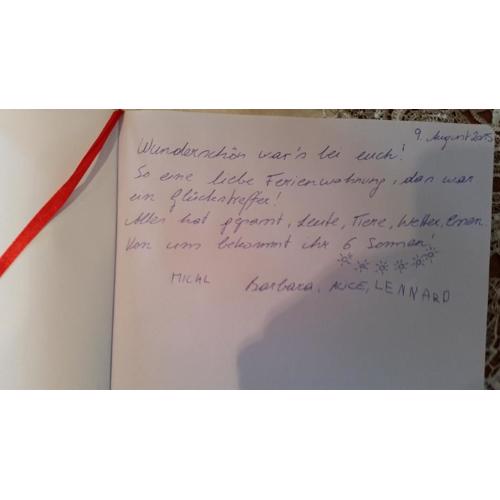 9. August 2015
Wunderschön war's bei euch!
So eine liebe Ferienwohnung, das war
ein Glückstreffer!
Alles hat gepasst, Leute, Tiere, Wetter, Essen.
Von uns bekommt ihr 6 Sonnen
MICHL Barbara, ALICE, LENNARD